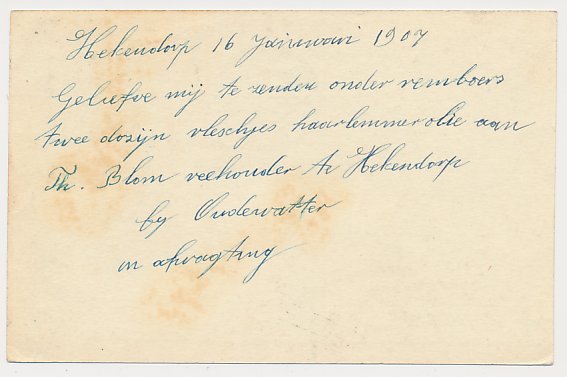 Hekendorp 16 Januari 1907
Geliefve mij te zenden onder remboers
twee dozijn vleschjes haarlemmerolie aan
Th. Blom veehouder te Hekendorp
by Oudewatter
in afwagting